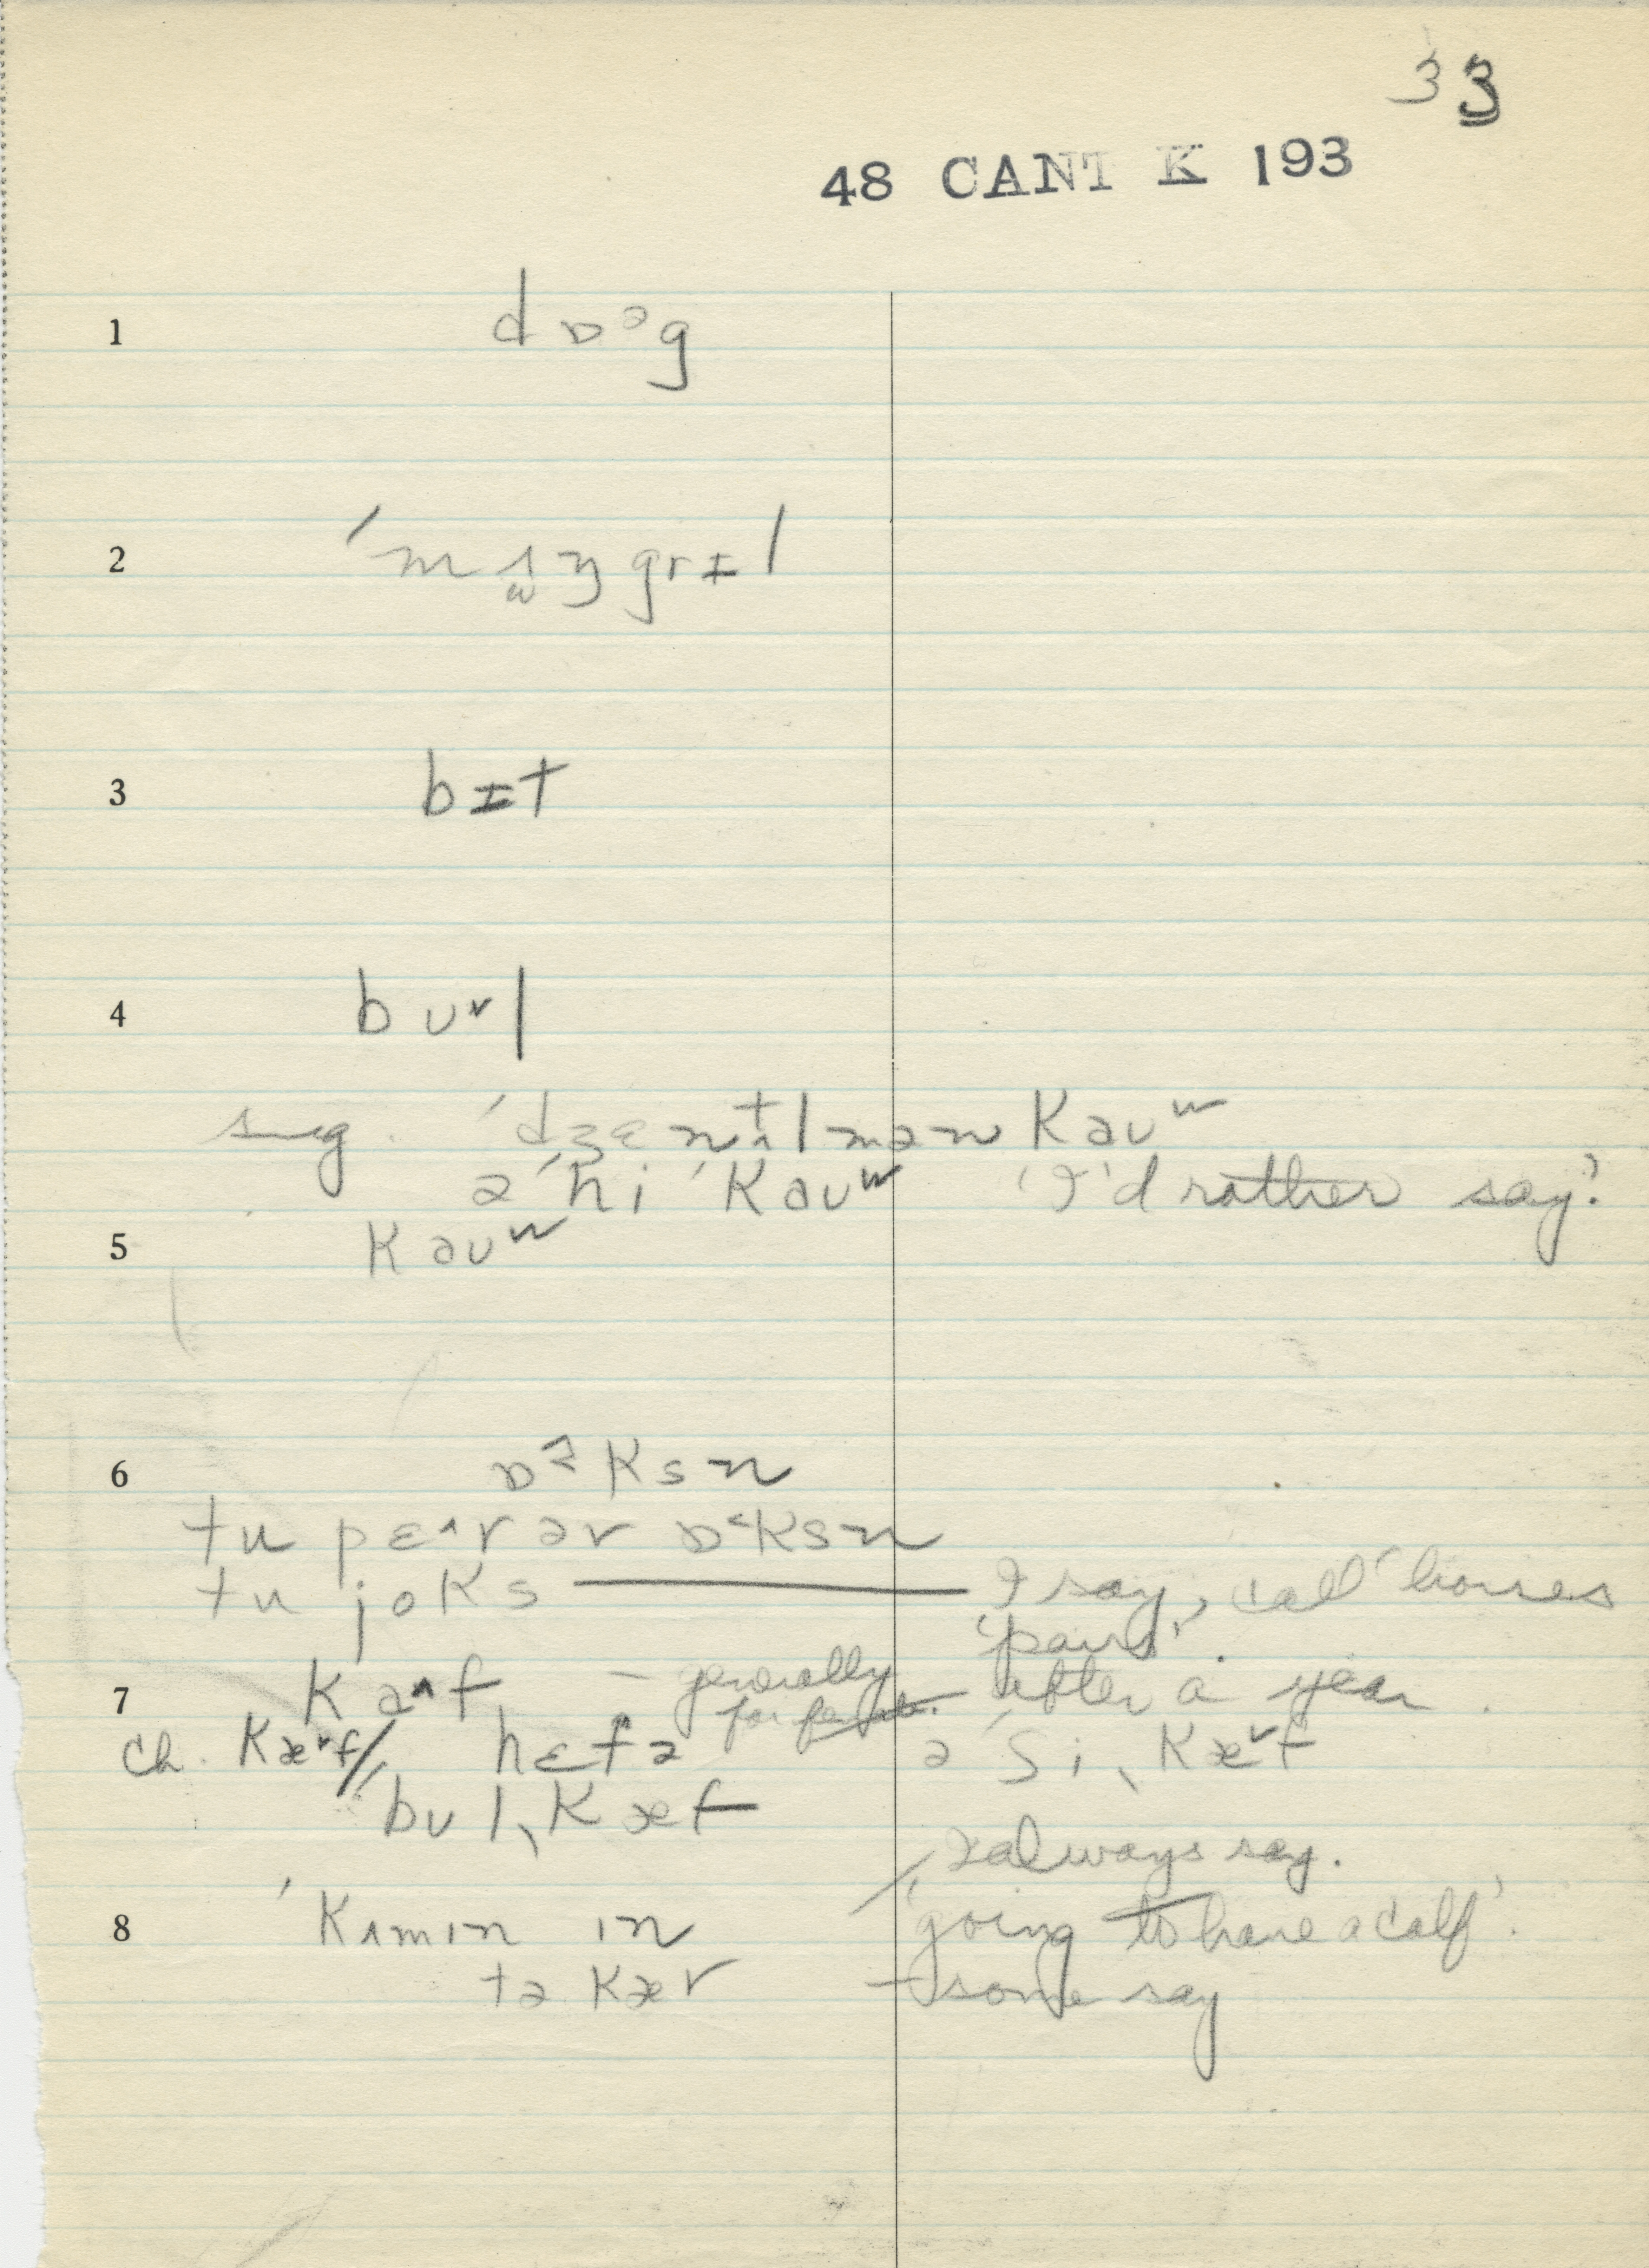 33
48 CANT K 193
1 dɒᵊg
2 ˈmʌŋgrɪl
3 bɪt
4 bʊ˅l
sug. ˈdʒɛntlmən kaʊʷ
ə ˈhi ˈkaʊʷ 'I'd rather say'
5 kaʊʷ
6 ɒksn
tu pɛ^r ər ɒ˂ksn
tu joks — I say, call horses
'pairs'.
7 ka^f – generally after a year.
for
ch. kæ˅f / hɛfə ə ˈʃiˌkæ˅f
ˈbʊlˌkæf
I always say.
8 ˈkʌmɪn ɪn 'going to have a calf'.
tə kær – some say